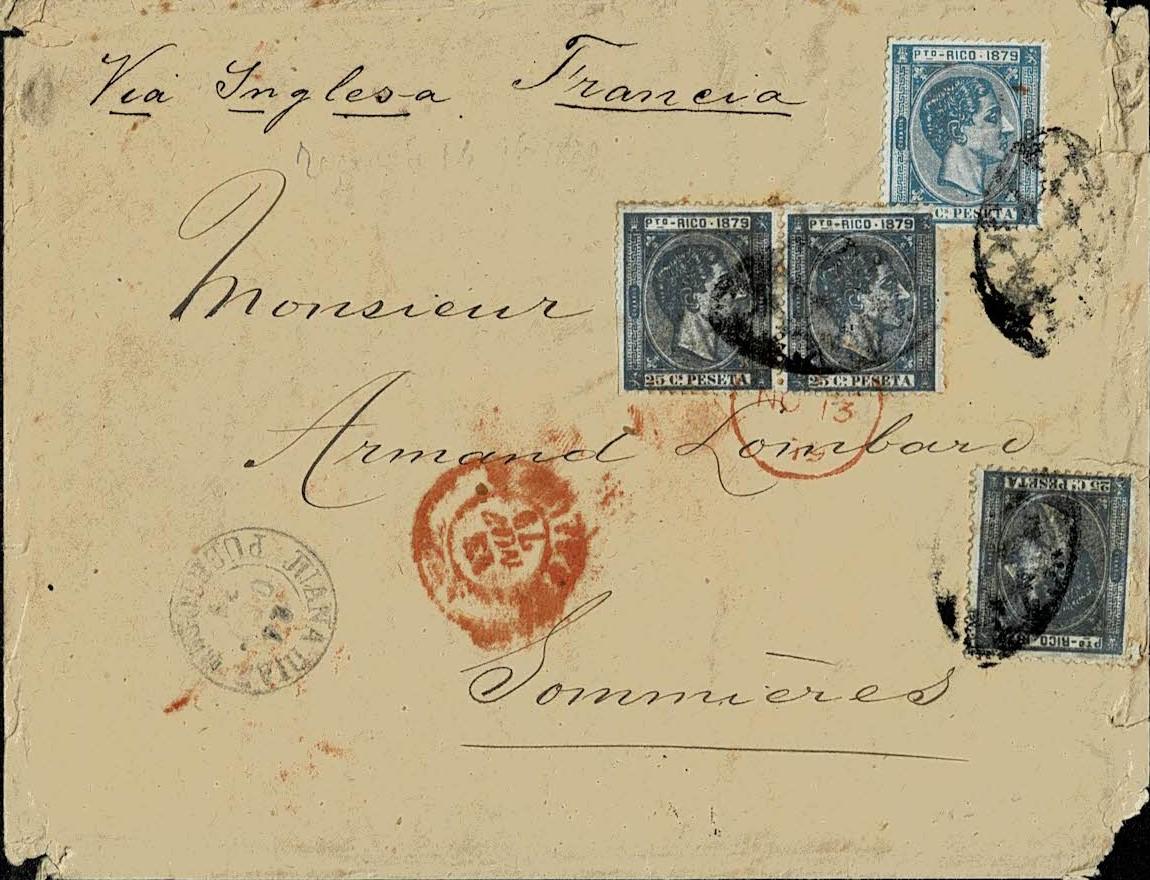 Via Inglesa Francia
PTO-RICO·1879
Cs PESETA
PTO-RICO·1879 PTO-RICO·1879
25 Cs PESETA 25 Cs PESETA
Monsieur
13
Armand Lombard
25 Cs PESETA
PTO-RICO
Sommières